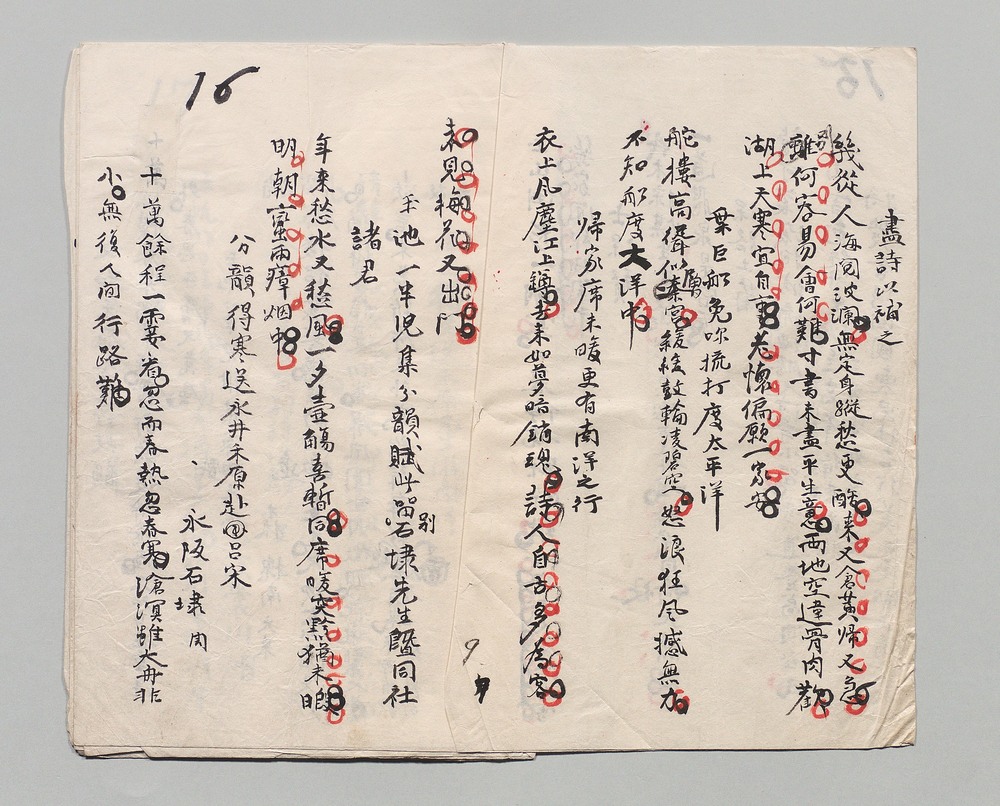 盡詩以補之
幾從人海閱波瀾無定身縱愁更酷来又倉黄歸又急
離何容易會何難寸書未盡平生意両地空違骨肉歡
別
湖上天寒宜自事老懷偏願一家安
葉巨船免喚梳打度太平洋
舵樓高聳似秦宮緩 鼓輪凌碧空怒浪狂風撼無力
層
不知船度大洋中
帰家席未暖更有南洋之行
衣上風塵江上轉去来如夢暗銷魂詩人自古多為客
未見梅花又出門
平池一半児集分韻賦此留石埭先生曁同社
別
諸君
年来愁水又愁風一夕壷觴喜暫同席暖突黔猶未暇
明朝蜜雨瘴烟中
分韻得寒送永井禾原赴呂宋
永阪石埭周
十萬餘程一霎看忽而春熱忽春寒滄溟雖大舟非
小無復人間行路難
16
15
9